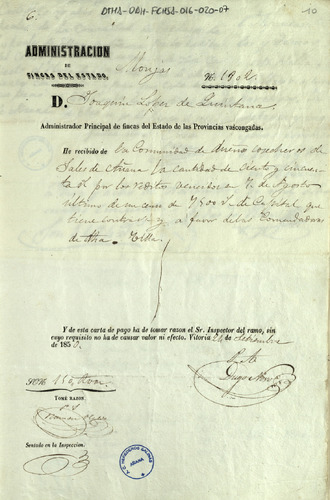 DTHA-ODH-FCHSA-016-020-07
10
6.
ADMINISTRACION
DE
FINCAS DEL ESTADO.
Monjas
N.
D. Joaquín López de Quintana
Administrador Principal de fincas del Estado de las Provincias vascongadas.
He recibido de la Comunidad de dueños cosecheros de
Sales de Añana la cantidad de Ciento y cincuen-
ta r por los réditos vencidos en de Agosto
último de un censo de 7500 r de Capital que
tiene contra sí y a favor de las Comendadoras
de dha. Villa.
Y de esta carta de pago ha de tomar razon el Sr. Inspector del ramo, sin
cuyo requisito no ha de causar valor ni efecto. Vitoria 24 de Setiembre
de 185
SON 150
TOMÉ RAZON.
Sentado en la Inspeccion.
AÑANA